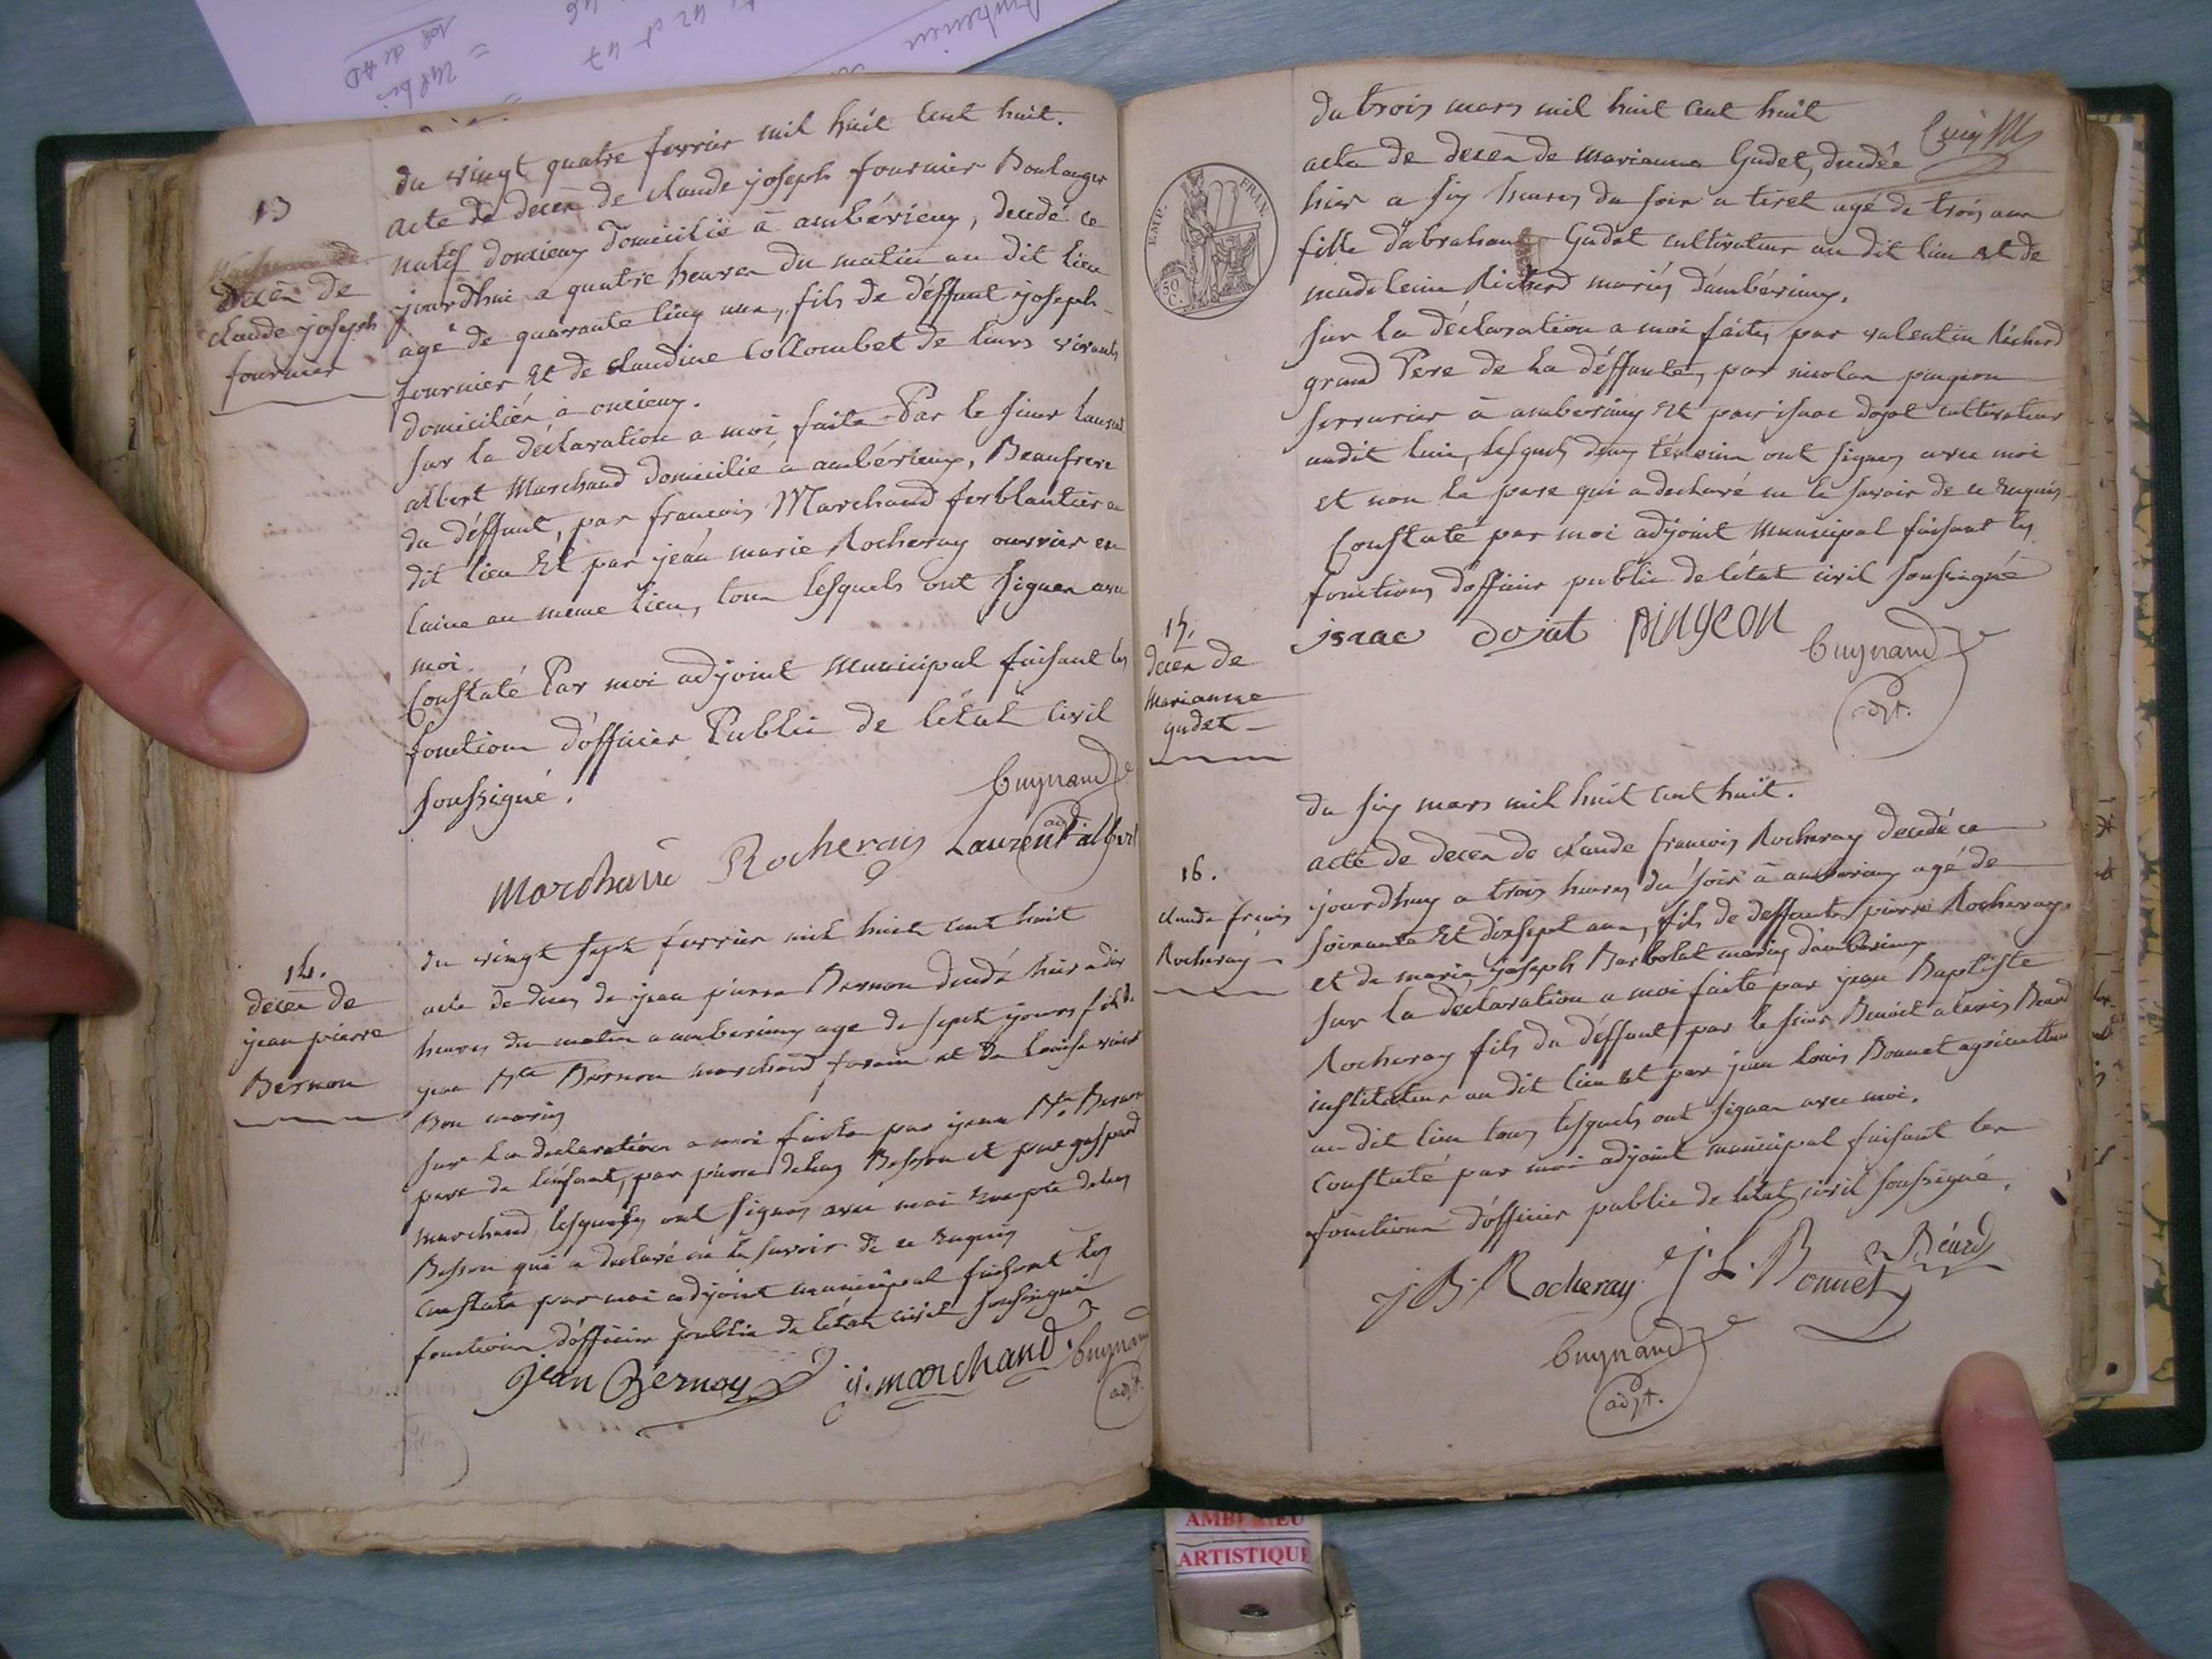 13
Decès de
claude joseph
fournier
du vingt quatre fevrier mil huit cent huit.
acte de decès de claude joseph fournier Boulanger
natif doncieux domicilié à ambérieux, decedé ce
jourdhui a quatre heures du matin au dit lieu
agé de quarante cinq ans, fils de déffunt joseph
fournier et de claudine Collombet de leurs vivants
domiciliés à oncieux.
sur la déclaration a moi faite Par le sieur Laurent
albert Marchand domicilié a ambérieux, Beaufrere
du déffunt, par francois Marchand ferblantier au
dit lieu Et par jean marie Rocheray ouvrier en
laine au meme lieu, tous lesquels ont signer avec
moi.
Constaté Par moi adjoint municipal faisant les
fonctions d'officier Public de létat Civil
soussigné.
Cuynand
adjt
Marchand Rocherais Laurent albert
14.
decès de
jean pierre
Bernon
du vingt sept fevrier mil huit cent huit
acte de deces de jean pierre Bernon decedé hier a dix
heures du matin a amberieux age de sept jours fils de
jean Bte Bernon marchand forain et de Louise
Bon mariés
sur la declaration a moi faite par jean Bte Bernon
pere de lenfant, par pierre Besson et par gaspard
marchand, lesquels ont signes avec moi Excepte
Besson qui a declaré ne le savoir de ce Requis
Constate par moi adjoint municipal faisant les
fonctions dofficier public de létat civil soussigné
jean Bernon g. marchand Cuynand
adjt.
EMP. FRAN.
50 C.
du trois mars mil huit cent huit
acte de decès de marianne Gudet, decedée
hier a six heures du soir a tiret agé de trois ans
fille d'abraham Gudet cultivateur au dit lieu et de
madeleine Richerd mariés d'ambérieux.
sur la déclaration a moi faite, par valentin Richerd
grand Pere de la déffunte, par nicolas pingeon
serrurier à amberieux Et par isaac dojat cultivateur
audit lieu, lesquels deux témoins ont signes avec moi
et non le pere qui a declaré ne le savoir de ce Requis
Constaté par moi adjoint municipal faisant les
fonctions dofficier public de létat civil soussigné
isaac dojat pingeon Cuynand
adjt.
15.
deces de
Marianne
gudet
16.
claude francois
Rocheray
du six mars mil huit cent huit.
acte de deces de claude francois Rocheray decedé ce
jourdhuy a trois heures du soir à amberieux agé de
soixante Et dixsept ans, fils de deffunts pierre Rocheray
et de marie joseph Barbolat mariés d'amberieux
sur la declaration a moi faite par jean Baptiste
Rocheray fils du déffunt, par le sieur Benoit alexis Beard
instituteur au dit lieu et par jean Louis Bonnet agriculteur
au dit lieu tous lesquels ont signer avec moi.
Constaté par moi adjoint municipal faisant les
fonctions d'officier public de létat civil soussigné.
j B Rocheray j. L. Bonnet Béard
Cuynand
adjt.
AMBERIEU
ARTISTIQUE